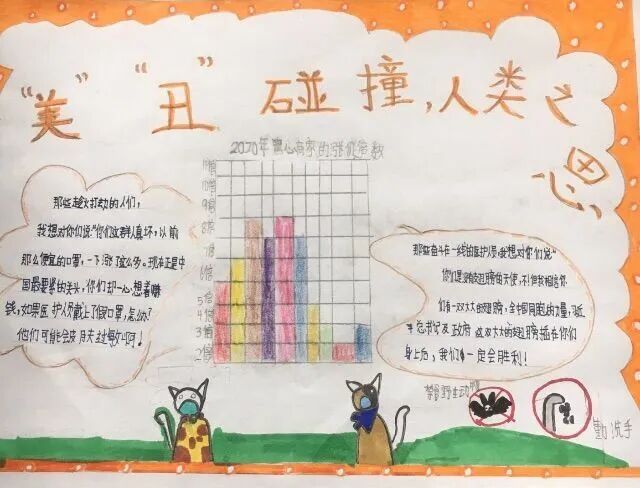 “美” “丑” 碰撞，人类之
思
2070年黑心商家的涨价倍数
11倍
10倍
9倍
8倍
7倍
6倍
5倍
4倍
3倍
2倍
那些趁火打劫的人们，
我想对你们说“你们这群人真坏，以前
那么便宜的口罩，一下涨这么多。现在正是中
国最要紧的关头，你们却一心想着赚
钱，如果医护人员戴上了假口罩，怎么办？
他们可能会
那些奋斗在一线的医护人员，我想对你们说“
你们是没有翅膀的天使，不！但我相信你
们有一双大大的翅膀，全中国同胞的力量，习近
平总书记及政府这双大大的翅膀插在你们
身上后，我们一定会胜利！
禁食野生动物
勤洗手